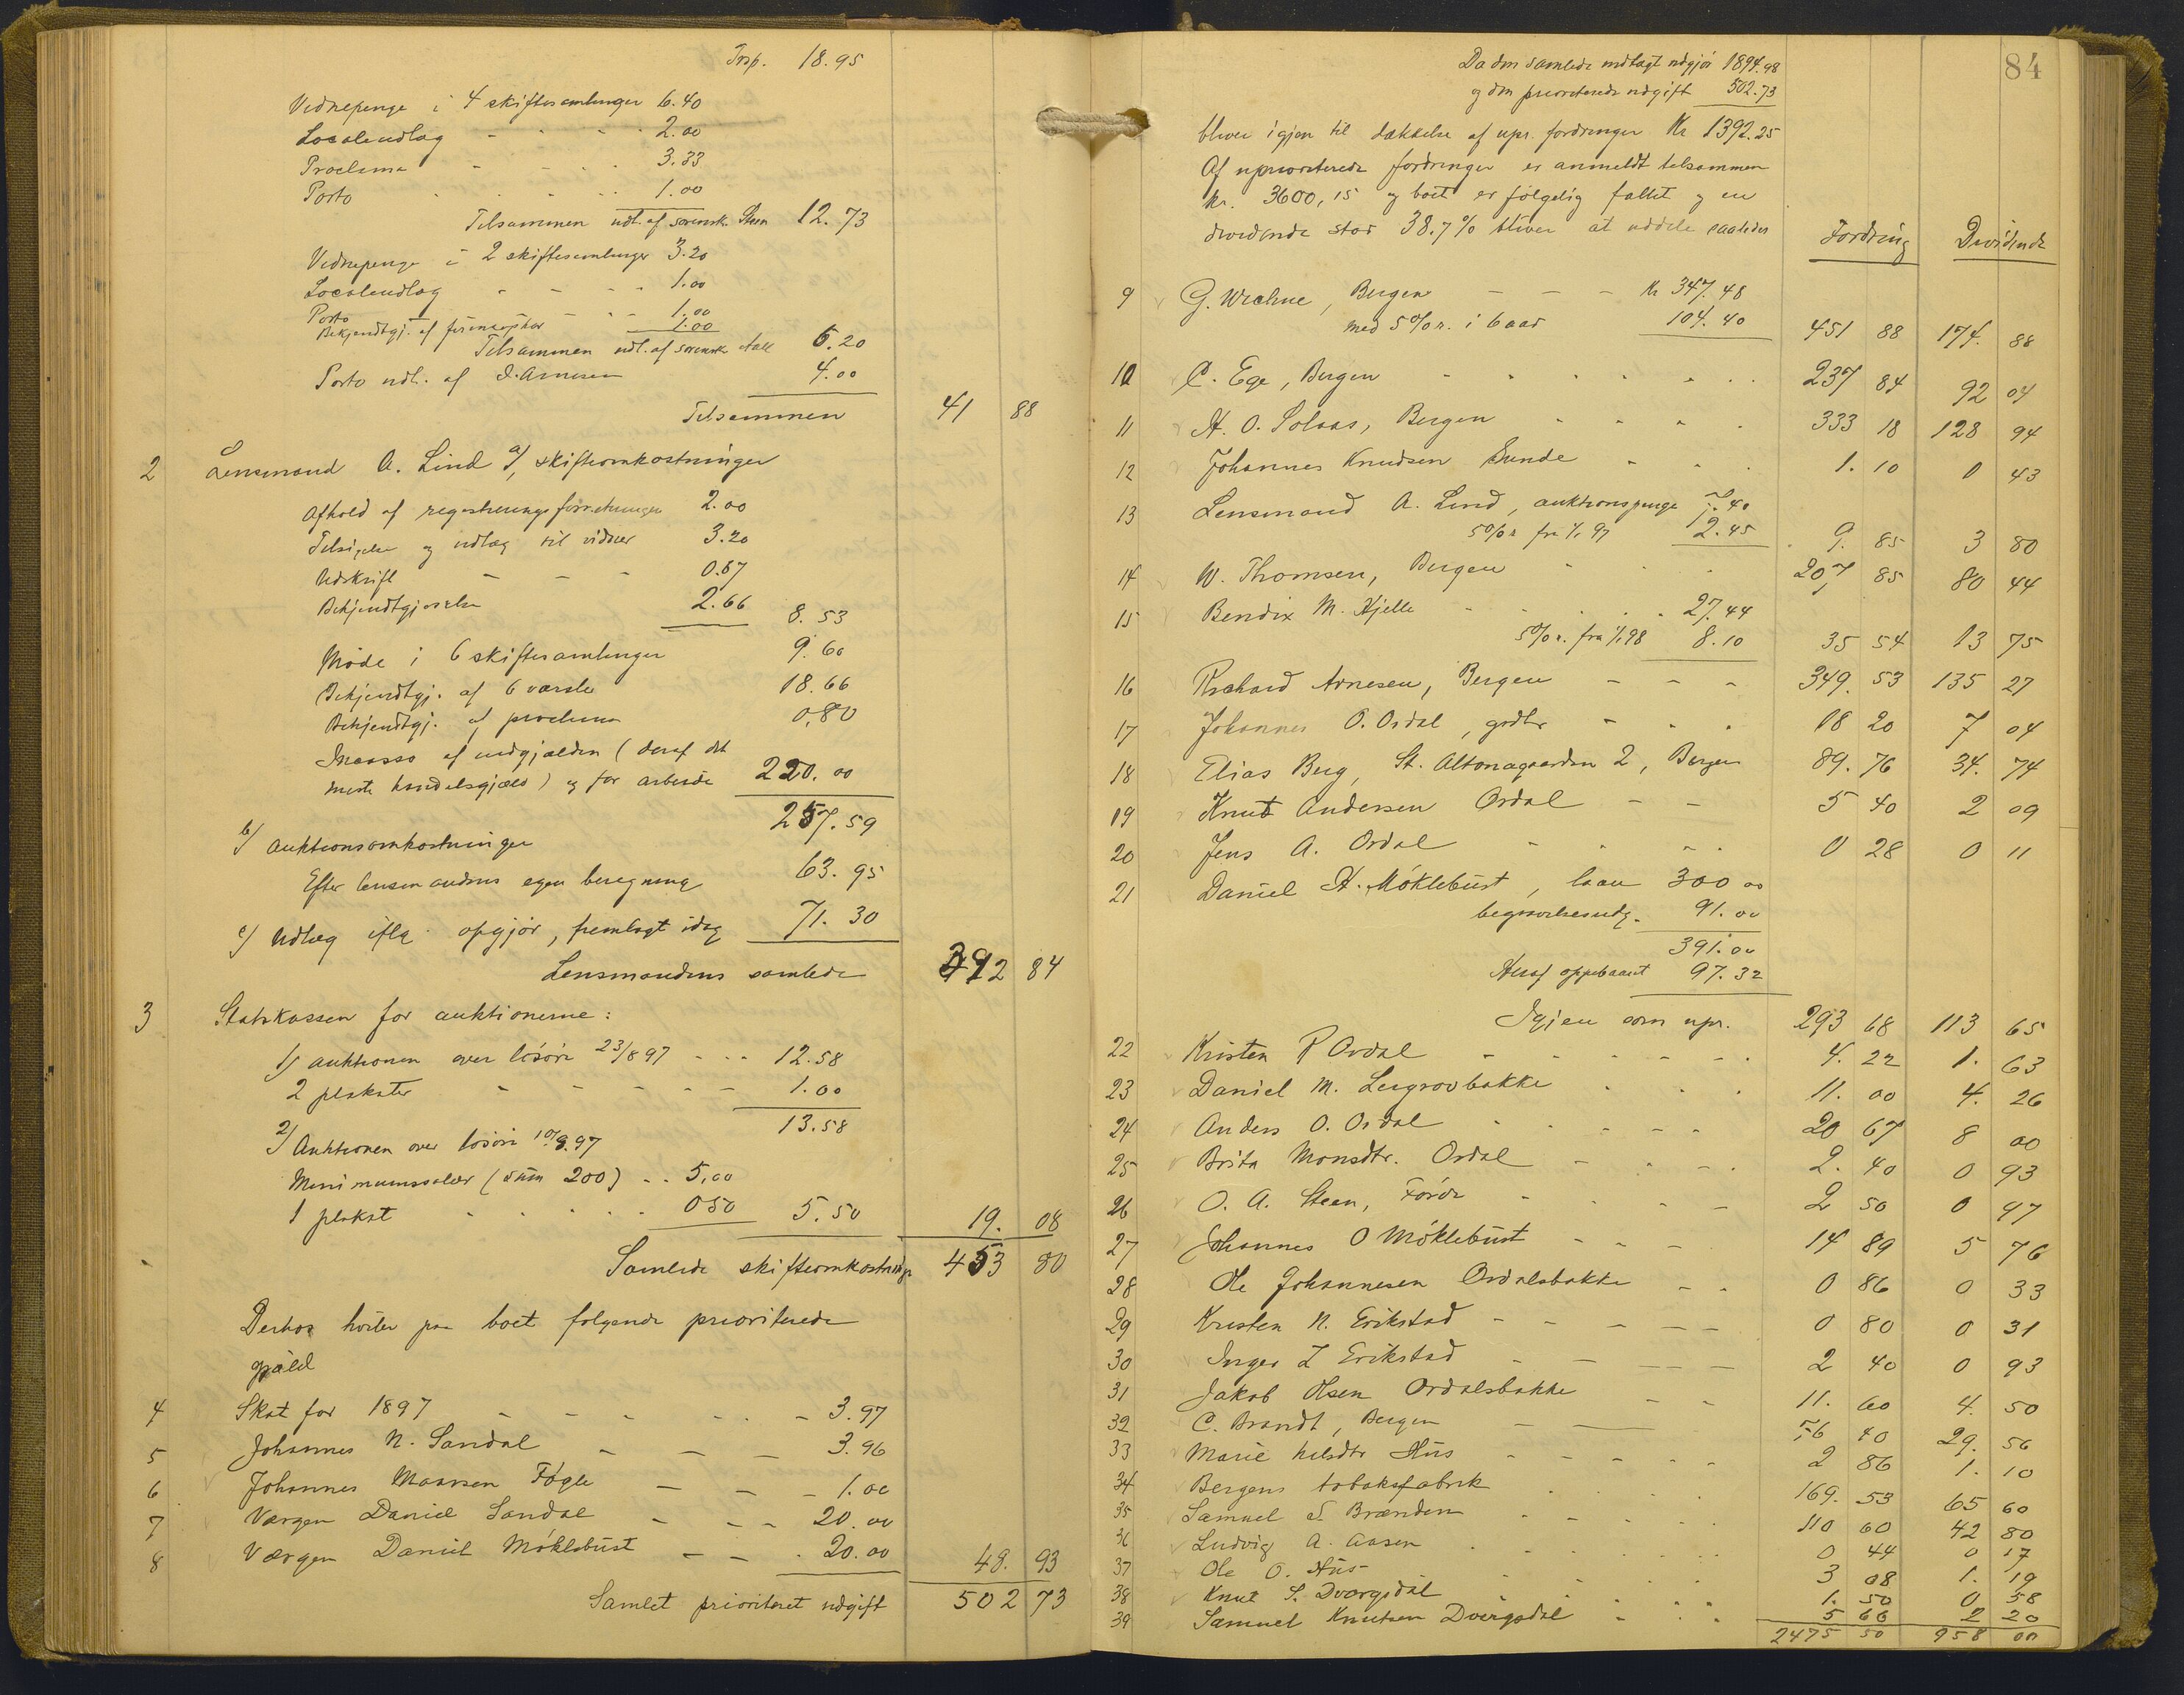 Trsp. 18.95
Vidnepenge i 4 skiftesamlinger 6.40
Localeudlæg - - - - 2.00
Proclama - - - - 3.33
Porto - - - - 1.00
Tilsammen udl. af sorensk. Steen 12.73
Vidnepenge i 2 skiftesamlinger 3.20
Localeudlæg - - - - 1.00
Porto - - - 1.00
Bekjendtgj. af 1.00
Tilsammen udl. af sorenskr. 6.20
Porto udl. af D. Arnesen 4.00
Tilsammen 41 88
2 Lensmand A. Lind a/ skifteomkostninger
Afhold af registreringsforretningen 2.00
Tilsigelse og udlæg til vidner 3.20
Udskrift - - - 0.67
Bekjendtgjørelse 2.66 8.53
Møde i 6 skiftesamlinger 9.60
Bekjendtgj. af 6 varsler 18.66
Bekjendtgj. af proclama 0,80
Incasso af indgjælden (deraf det
meste handelsgjæld) og for arbeide 220.00
257.59
b/ Auktionsomkostninger
Efter lensmandens egen beregning 63.95
c/ Udlæg iflg. opgjør, fremlagt idag 71.30
Lensmandens samlede 392 84
3 Statskassen for auktionerne:
1/ auktionen over løsøre 23/8 97 - - - 12.58
2 plakater - - - - - 1.00
13.58
2/ Auktionen over løsøre 10/9.97
Minimumssalær (sum 200) - - 5,00
1 plakat - - - - - 0 50 5.50 19. 08
Samlede skifteomkostninger 453 80
Derhos hviler paa boet følgende prioriterede
gjæld
4 Skat for 1897 - - - - - - 3.97
5 Johannes N. Sandal - - - 3.96
6 Johannes Monssen Fogle - - - 1.00
7 Værgen Daniel Sandal - - - 20.00
8 Værgen Daniel Møklebust - - - 20.00 48. 93
Samlet prioriteret udgift 502 73
84
Da den samlede indtægt udgjør 1894.98
og den prioriterede udgift 502.73
bliver igjen til dækkelse af upr. fordringer Kr 1392.25
Af uprioriterede fordringer er anmeldt tilsammen
kr. 3600,15 og boet er følgelig fallit og en
dividende stor 38.7% bliver at uddele saaledes Fordring Dividende
9 G. Wiahne, Bergen - - - Kr 347.48
med 5% r. i 6 aar 104.40 451 88 174. 88
10 C. Ege, Bergen - - - - - - 237 84 92 04
11 H. O. Solaas, Bergen - - - - 333 18 128 94
12 Johannes Knudsen Sunde - - - 1. 10 0 43
13 Lensmand A. Lind, auktionspenge 7.40
5% r fra 1/1 97 2.45 9. 85 3 80
14 W. Thomsen, Bergen - - - 207 85 80 44
15 Bendix M. Hjelle - - - - 27.44
5% r. fra 1/1 98 8.10 35 54 13 75
16 Richard Arnesen, Bergen - - - 349. 53 135 27
17 Johannes O. Ordal, - - - 18 20 7 04
18 Elias Berg, St. Altonagaarden 2, Bergen 89. 76 34. 74
19 Knut Andersen Ordal - - 5 40 2 09
20 Jens A. Ordal - - - - 0 28 0 11
21 Daniel H. Møklebust, laan 300 00
begravelsesudg. 91.00
391.00
Heraf oppebaaret 97.32
Igjen som upr. 293 68 113 65
22 Kristen P Ordal - - - - - - 4. 22 1. 63
23 Daniel M. Leigrovbakke - - - 11. 00 4. 26
24 Anders O. Ordal - - - - - 20 67 8 00
25 Brita Monsdtr. Ordal - - - - 2. 40 0 93
26 O. A. Steen, Førde - - - - 2 50 0 97
27 Johannes O Møklebust - - - 14 89 5 76
28 Ole Johannesen Ordalsbakke - - 0 86 0 33
29 Kristen N. Erikstad - - - - - 0 80 0 31
30 Inger L Erikstad - - - - 2 40 0 93
31 Jakob Olsen Ordalsbakke - - 11. 60 4. 50
32 C. Brandt, Bergen - - - 76 40 29. 56
33 Marie Nilsdtr Hus - - - - - 2 86 1. 10
34 Bergens tobaksfabrik - - - - 169. 53 65 60
35 Samuel S. Brænden - - - - 110 60 42 80
36 Ludvig A. Aasen - - - - - 0 44 0 17
37 Ole O. Hus - - - - 3 08 1. 19
38 Knut S. Dvergsdal - - - - 1. 50 0 58
39 Samuel Knutsen Dvergsdal - - - 5 66 2 20
2475 50 958 00